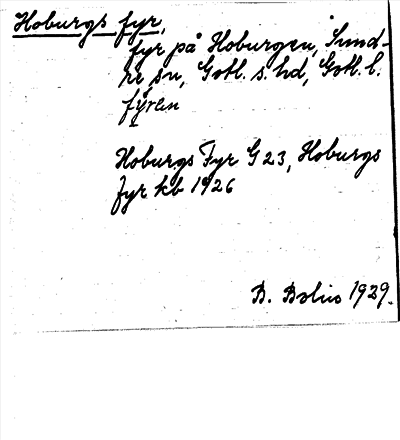 Hoburgs fyr,
fyr på Hoburgen, Sund-
re sn, Gotl. s. hd, Gotl. l.
fyren
Hoburgs Fyr G 23, Hoburgs
fyr kb 1926
B. Bolin 1929.